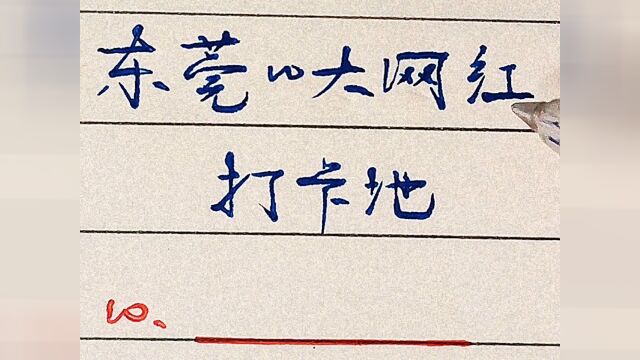 东莞10大网红
打卡地
10.